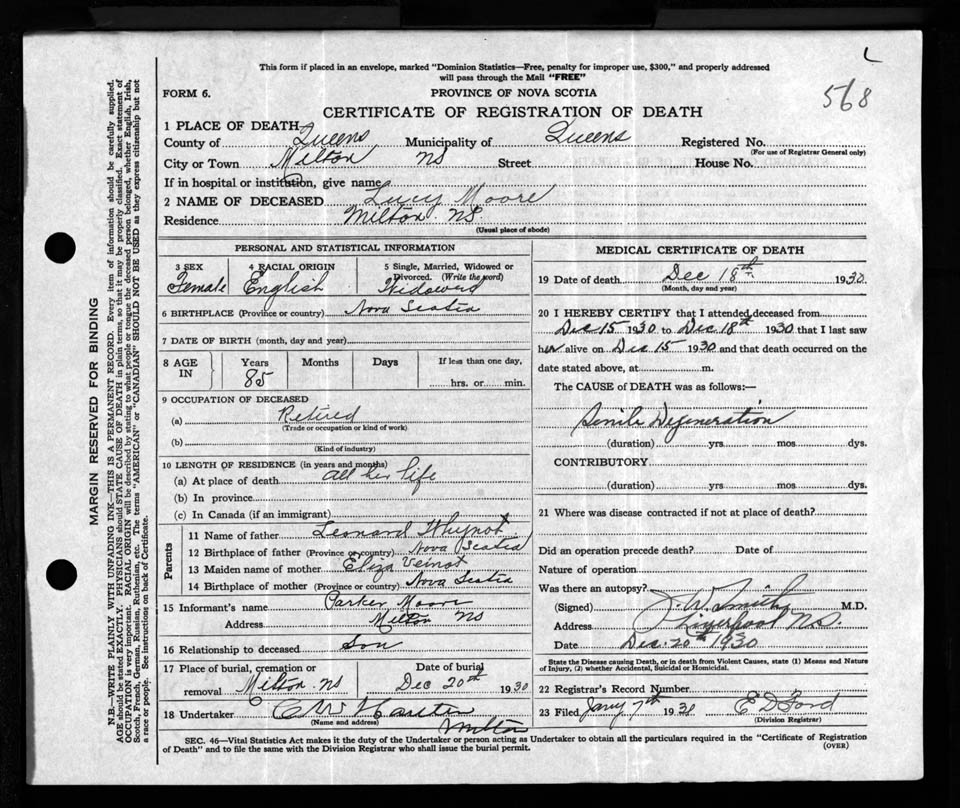 L
568
This form if placed in an envelope, marked "Dominion Statistics—Free, penalty for improper use, $300," and properly addressed
will pass through the Mail "FREE"
FORM 6.
PROVINCE OF NOVA SCOTIA
CERTIFICATE OF REGISTRATION OF DEATH
1 PLACE OF DEATH
County of Queens Municipality of Queens Registered No.
(For use of Registrar General only)
City or Town Milton NS Street House No.
If in hospital or institution, give name
2 NAME OF DECEASED Lucy Moore
Residence Milton NS
(Usual place of abode)
PERSONAL AND STATISTICAL INFORMATION
3 SEX
Female
4 RACIAL ORIGIN
English
5 Single, Married, Widowed or
Divorced. (Write the word)
Widowed
6 BIRTHPLACE (Province or country) Nova Scotia
7 DATE OF BIRTH (month, day and year)
8 AGE IN
Years
85
Months
Days
If less than one day,
hrs. or min.
9 OCCUPATION OF DECEASED
(a) Retired
(Trade or occupation or kind of work)
(b)
(Kind of industry)
10 LENGTH OF RESIDENCE (in years and months)
(a) At place of death all her life
(b) In province
(c) In Canada (if an immigrant)
Parents
11 Name of father Leonard Whynot
12 Birthplace of father (Province or country) Nova Scotia
13 Maiden name of mother Eliza Veinot
14 Birthplace of mother (Province or country) Nova Scotia
15 Informant's name Parker Moore
Address Milton NS
16 Relationship to deceased Son
17 Place of burial, cremation or
removal Milton NS
Date of burial
Dec 20th 1930
18 Undertaker C W
(Name and address)
Milton
MEDICAL CERTIFICATE OF DEATH
19 Date of death Dec 18th 1930
(Month, day and year)
20 I HEREBY CERTIFY that I attended deceased from
Dec 15 1930 to Dec. 18th 1930 that I last saw
her alive on Dec 15 1930 and that death occurred on the
date stated above, at m.
The CAUSE of DEATH was as follows:—
Senile Degeneration
(duration) yrs. mos. dys.
CONTRIBUTORY
(duration) yrs. mos. dys.
21 Where was disease contracted if not at place of death?
Did an operation precede death? Date of
Nature of operation
Was there an autopsy?
(Signed) J. W. Smith M.D.
Address Liverpool N.S.
Date Dec. 20th 1930
State the Disease causing Death, or in death from Violent Causes, state (1) Means and Nature
of Injury, (2) whether Accidental, Suicidal or Homicidal.
22 Registrar's Record Number
23 Filed Jany 7th 1931 E D Ford
(Division Registrar)
SEC. 46—Vital Statistics Act makes it the duty of the Undertaker or person acting as Undertaker to obtain all the particulars required in the "Certificate of Registration
of Death" and to file the same with the Division Registrar who shall issue the burial permit.
(OVER)
MARGIN RESERVED FOR BINDING
N.B.—WRITE PLAINLY WITH UNFADING INK—THIS IS A PERMANENT RECORD. Every item of information should be carefully supplied.
AGE should be stated EXACTLY. PHYSICIANS should STATE CAUSE OF DEATH in plain terms, so that it may be properly classified. Exact statement of
OCCUPATION is very important. RACIAL ORIGIN will be described by stating to what people or tongue the deceased person belonged, whether English, Irish,
Scotch, French, German, Russian, Ruthenian, etc. The terms "AMERICAN" or "CANADIAN" SHOULD NOT BE USED as they express citizenship but not
a race or people. See instructions on back of Certificate.